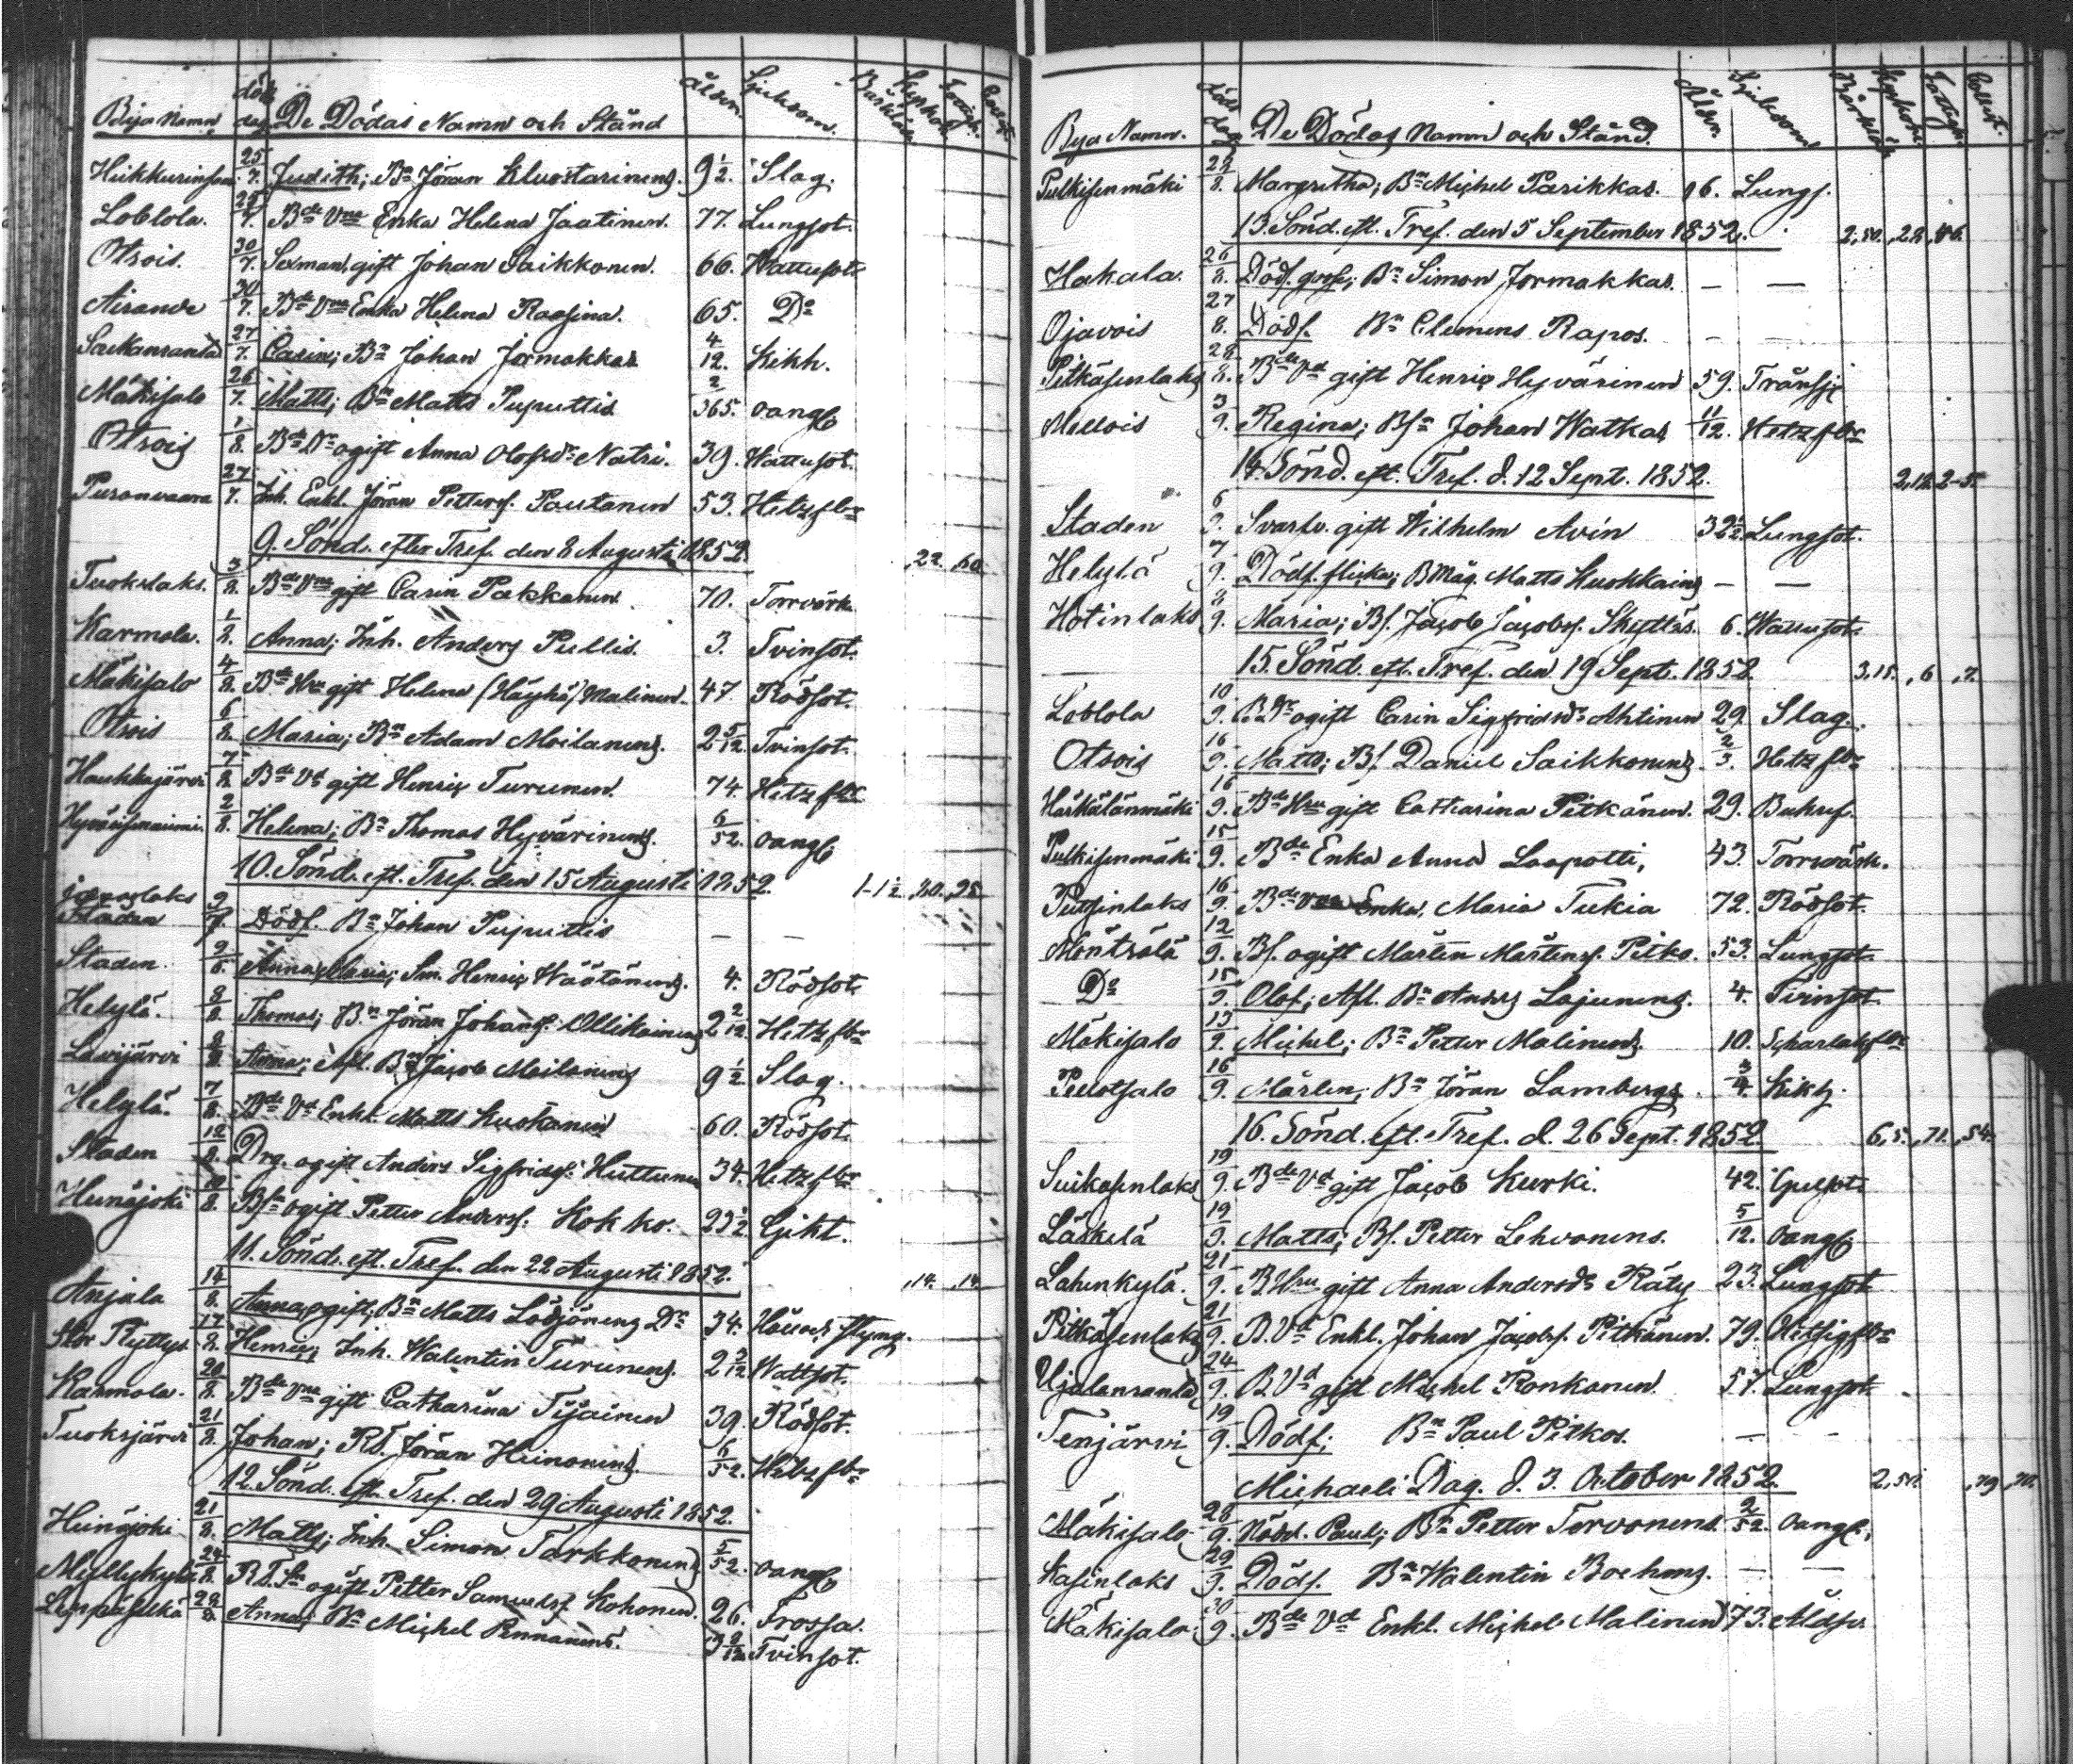 Bya Namn död dag De Dödas Namn och Stånd ålder Sjukdom Bårkläde Kyrkok. Fattigk. Collect.
25/7. Judith; Bn Jöran Kluostarinens. 9 1/2. Slag.
Loblola. 7. Bde Vna Enka Helena Jaatinen. 77. Lungsot.
Otsois. 30/7. Sexman, gift Johan Saikkonen. 66. Wattusot.
30/7. Bde Vna Enka Helena Raasina. 65. Do
27/7. Carin; Bn Johan Jormakkas 4/12. Kikh.
Mäkisalo 26/7. Matts; Bn Matts Puputtis 2/365. oangf
Otsois 1/8. Bde Dr ogift Anna Olofsdr Natri. 39. Wattusot.
Pusonvaara 27/7. Inh. Enkl. Jöran Petters. Pautanen 53. Hetzfbr
9. Sönd. efter Tref. den 8 Augusti 1852. ,22. ,60
Tuokslaks. 3/8. Bde Vna gift Carin Pakkanen 70. Torrvärk
Karmola. 1/8. Anna; Inh. Anders Pullis. 3. Tvinsot.
Mäkisalo 4/8. Bde Hru gift Helena (Häyhä) Malinen. 47. Rödsot.
Otsois 6/8. Maria; Bn Adam Moilanens. 2 5/12. Tvinsot.
Haukkajärvi 7/8. Bde Vd gift Henric Turunen. 74. Hetzfbr
2/8. Helena; Bn Thomas Hyvärinens. 6/52. oangf
10. Sönd. eft. Tref. den 15 Augusti 1852. 1-1 1/2. ,20. ,25
Staden 9/8. Dödf. Bn Johan Puputtis — —
Staden. 9/8. Anna Maria; Sm. Henric Wäätänens. 4. Rödsot.
Helylä. 8/8. Thomas; Bn Jöran Johans. Ollikainens 2 2/12. Hetzfbr
Lavijärvi 8/8. Anna; Afl. Bn Jacob Moilanens 9 1/2 Slag.
Helylä. 7/8. Bde Vd Enkl. Matts Kuokanen 60. Rödsot.
Staden 12/8. Drg. ogift Anders Sigfrids. Huttunen 34. Hetzfbr
Hunsjoki 10/8. Bsn ogift Petter Anders. Kokko. 23 1/2 Gikt.
11. Sönd. eft. Tref. den 22 Augusti 1852. ,14. ,14
Anjala 14/8. Anna ogift; Bn Matts Lötjönens Dr 34.
Stor Ryttys 17/8. Henric; Inh. Walentin Turunens. 2 3/12 Wattsot.
Karmola. 20/8. Bde Vna gift Catharina Tijainen 39. Rödsot.
Tuoksjärvi 21/8. Johan; Rd. Jöran Heinonens. 6/52. Hetzfbr
12. Sönd. eft. Tref. den 29 Augusti 1852.
Heinsjoki 21/8. Matts; Inh. Simon Tarkkonens 5/52. oangf
Myllykylä 24/8. ogift Petter Samuels. Kohonen. 26. Frossa.
28/8. Anna; Bn Michel Pennanens. 3 9/12 Tvinsot.
Bya Namn. död dag De Dödas Namn och Stånd. Ålder. Sjukdom Bårkläde Kyrkok. Fattigk. Collect.
Pulkisenmäki 28/8. Margretha; Bn Michel Parikkas. 16. Lungs.
13. Sönd. eft. Tref. den 5 September 1852. 2,50. ,28. ,46.
Hakala. 26/8. Dödf. gosse; Bn Simon Jormakkas. — —
Ojavois 27/8. Dödf. Bn Clemens Rapos. — —
Pitkäsenlaks 28/8. Bde Vd gift Henric Hyvärinen 59. Trånsj
Mellois 3/9. Regina; Bsn Johan Watkas 11/12. Hetzfbr
14. Sönd. eft. Tref. d. 12 Sept. 1852. 2,12. 2-5.
Staden 6/9. Svarfv. gift Wilhelm Avin 32 1/2 Lungsot.
Helylä 7/9. Dödf. flicka; B Måg. Matts Kuokkains — —
Hotinlaks 8/9. Maria; Bs. Jacob Jacobs. Skyttäs. 6. Wattusot.
15. Sönd. eft. Tref. den 19 Sept. 1852. 3,15. ,6 ,7.
Loblola 10/9. B Dr ogift Carin Sigfridsdr Ahtinen 29. Slag.
Otsois 16/9. Matts; Bs. Daniel Saikkonens. 2/3. Hetzfbr
Härkälänmäki 16/9. Bde Hru gift Catharina Pitkänen. 29. Bukref.
Pulkisenmäki 15/9. Bde Enka Anna Laapotti, 43. Torrvärk.
Putsinlaks 16/9. Bde Vna Enka, Maria Tukia 72. Rödsot.
Möntsölä 12/9. Bs. ogift Mårten Mårtens. Pitko. 53. Lungsot.
Do 15/9. Olof; Afl. Bn Anders Lajunens. 4. Tvinsot.
Mäkisalo 13/9. Michel; Bn Petter Malinens. 10. Scharlakfbr
Pellotsalo 16/9. Mårten; Bn Jöran Lambergs. 3/4. Kikh.
16. Sönd. eft. Tref. d. 26 Sept. 1852. 6,5. ,71. ,54.
Suikasenlaks 19/9. Bde Vd gift Jacob Kurki. 42. Gulsot
Läskelä 19/9. Matts; Bs. Petter Lehvonens. 5/12. oangf.
Lahenkylä. 21/9. B Hru gift Anna Andersdr Räty 23. Lungsot
Pitkäsenlaks 21/9. B. Vd Enkl. Johan Jacobs. Pitkänen. 79. Hetsigfbr
Ujalanranta 24/9. B Vd gift Michel Ronkanen 57. Lungsot.
Tenjärvi 19/9. Dödf; Bn Paul Pitkos. — —
Michaeli Dag. d. 3. October 1852. 2,50. ,79 ,70.
Mäkisalo 28/9. Nödd. Paul; Bn Petter Torvonens. 2/52. oangf.
Kasinlaks 29/9. Dödf. Bn Walentin Boehms. — —
Mäkisalo. 30/9. Bde Vd Enkl. Michel Malinen 73. Åldr